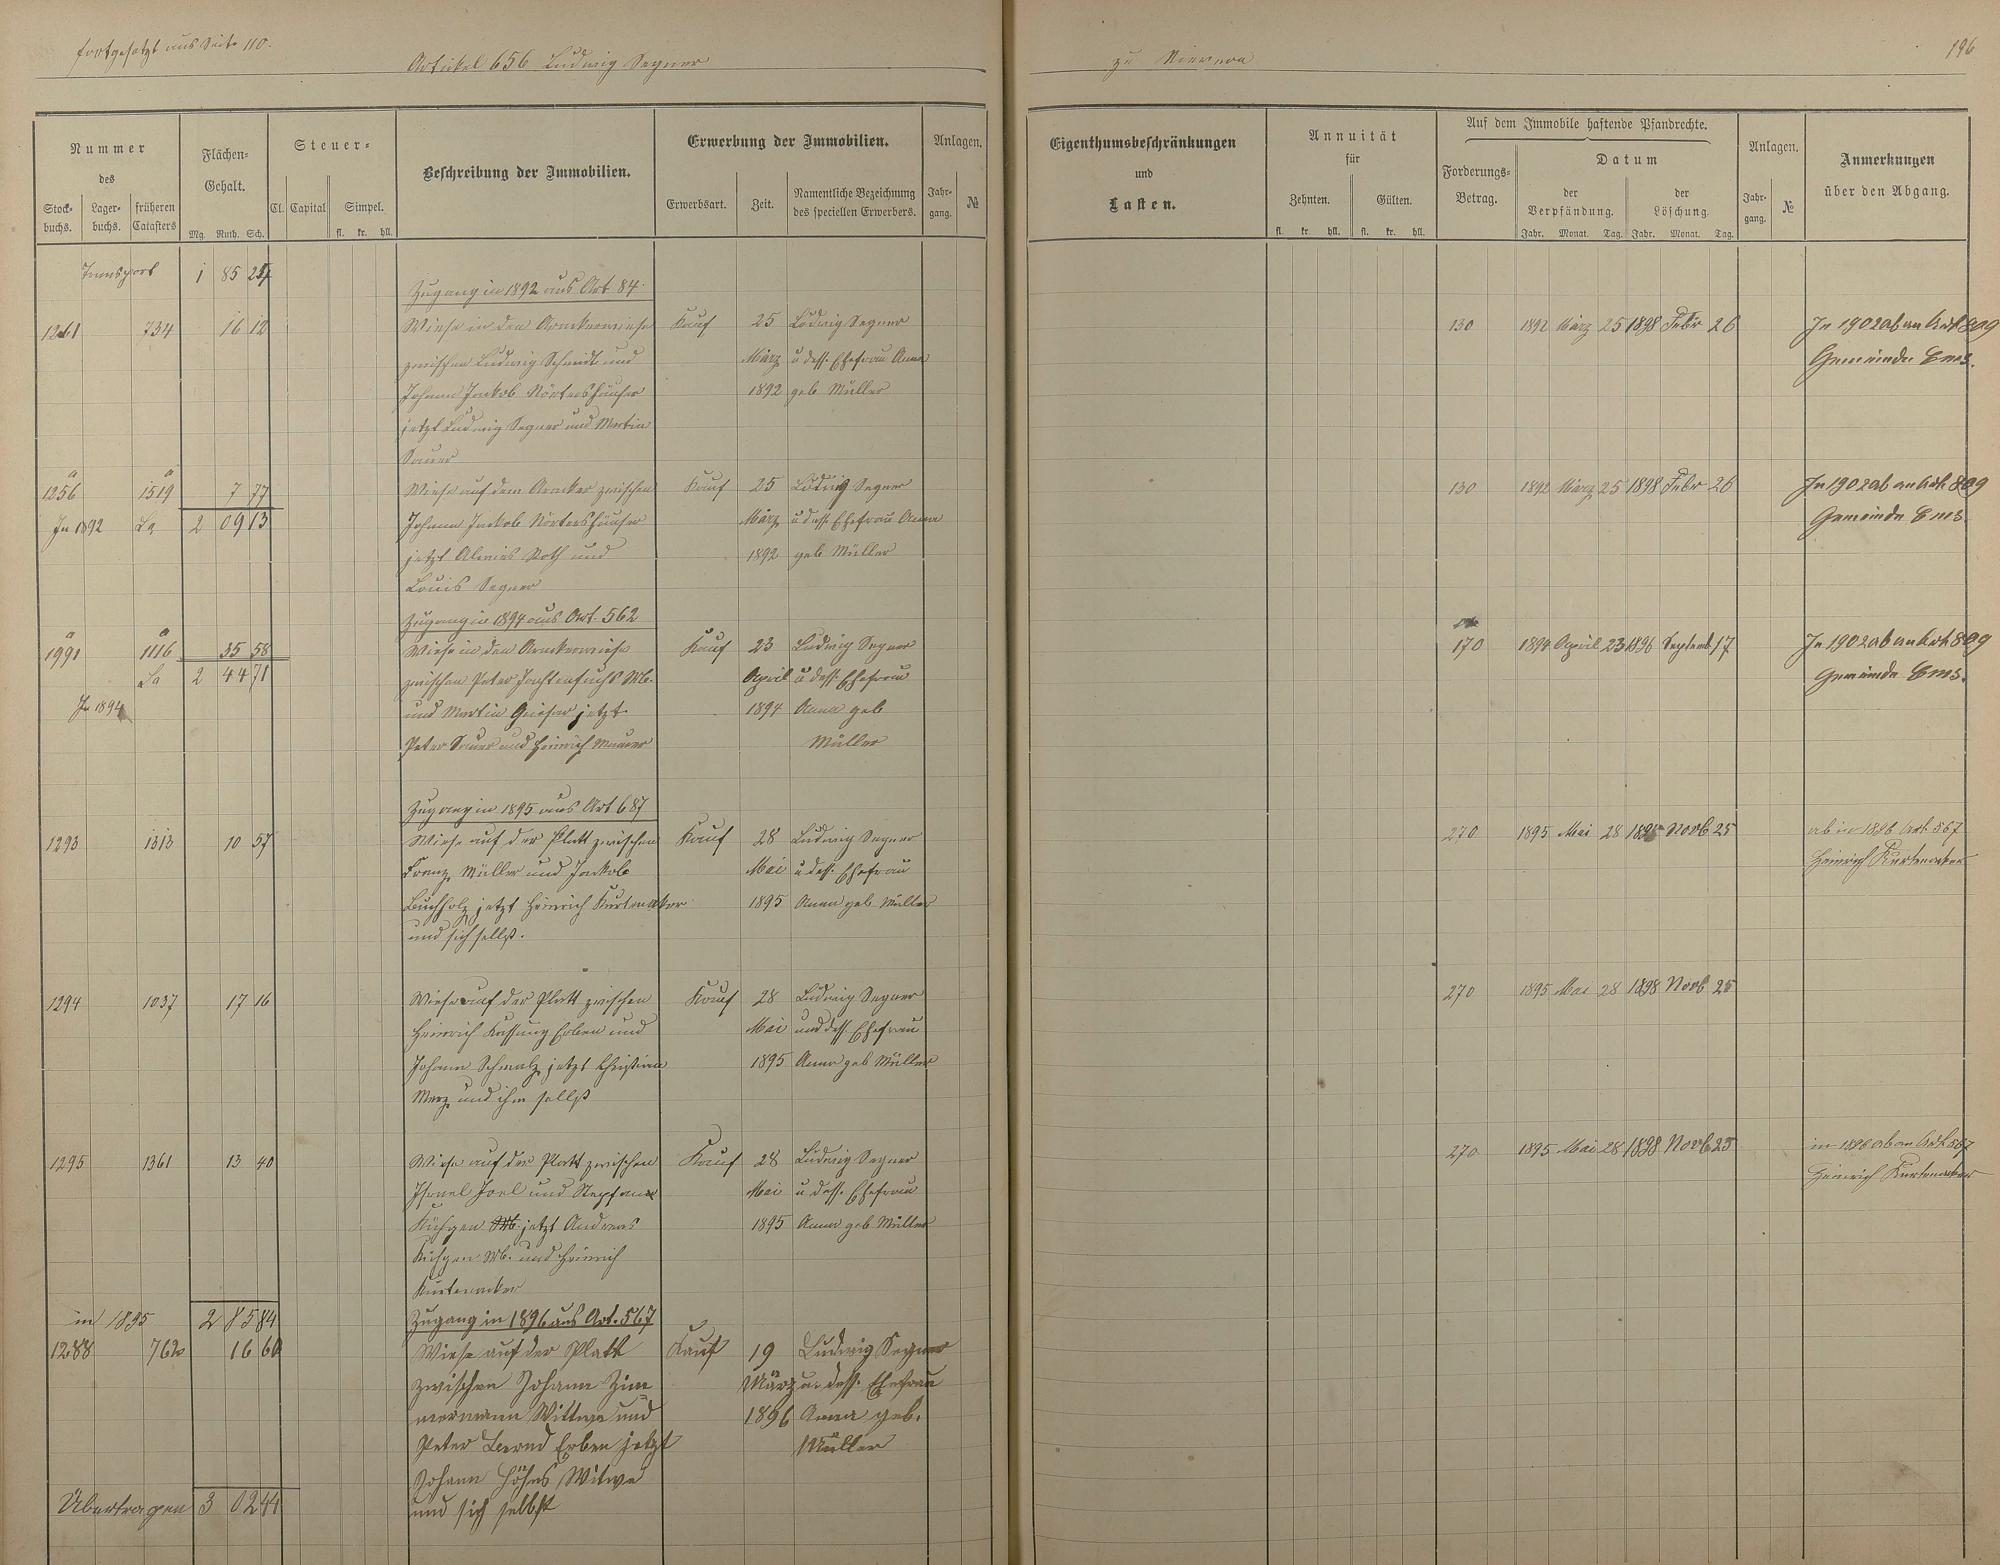 fortgesetzt aus Seite 110.
Artikel 656 Ludwig Segner
zu Nievern
196
Nummer
des
Stock-
buchs.
Lager-
buchs.
früheren
Catasters
Flächen-
Gehalt.
Mg. Ruth. Sch.
Steuer-
Cl. Capital Simpel.
fl. kr. hll.
Beschreibung der Immobilien.
Erwerbung der Immobilien.
Erwerbsart. Zeit.
Namentliche Bezeichnung
des speciellen Erwerbers.
Anlagen.
Jahr-
gang.
№
Eigenthumsbeschränkungen
und
Lasten.
Annuität
für
Zehnten. Gülten.
fl. kr. hll. fl. kr. hll.
Auf dem Immobile haftende Pfandrechte.
Forderungs-
Betrag.
Datum
der
Verpfändung.
der
Löschung.
Jahr. Monat. Tag. Jahr. Monat. Tag.
Anlagen.
Jahr-
gang.
№
Anmerkungen
über den Abgang.
Transport 1 85 24
Zugang in 1892 aus Art 84.
1261 734 16 12 Wiese in den Arnckerwiese Kauf 25 Ludwig Segner 130 1892 März 25 1898 Febr 26 In 1902 ab an Art 809
zwischen Ludwig Schmidt und März u dess. Ehefrau Anna Gemeinde Ems.
Johann Jackob Nörtershäuser 1892 geb Müller
jetzt Ludwig Segner und Martin
Sauer
1256 1519 7 77 Wiese auf dem Arncker zwischen Kauf 25 Ludwig Segner 130 1892 März 25 1898 Febr 26 In 1902 ab an Art 809
In 1892 Sa 2 09 13 Johann Jackob Nörtershäuser März u dess Ehefrau Anna Gemeinde Ems.
jetzt Roth und 1892 geb Müller
Louis Segner
Zugang in 1894 aus Art. 562
1991 1116 35 58 Wiese in den Arnckerwiese Kauf 23 Ludwig Segner 170 1894 April 23 1896 Septemb 17 In 1902 ab an Art 809
Sa 2 44 71 zwischen Peter Jachtenfuchs Wb. April u dess. Ehefrau Gemeinde Ems.
In 1894 und Martin jetzt 1894 Anna geb
Peter Sauer und Heinrich Maurer Müller
Zugang in 1895 aus Art 687
1293 1313 10 57 Wiese auf der Platt zwischen Kauf 28 Ludwig Segner 270 1895 Mai 28 1898 Novb 25 ab in 1896 Art 567
Franz Müller und Jackob Mai u dess. Ehefrau Heinrich Kurtenacker
Buchholz jetzt Heinrich Kurtenacker 1895 Anna geb Müller
und sich selbst.
1294 1037 17 16 Wiese auf der Platt zwischen Kauf 28 Ludwig Segner 270 1895 Mai 28 1898 Novb 25
Heinrich Erben und Mai und dess Ehefrau
Johann Schmalz jetzt Christian 1895 Anna geb Müller
Merz und ihm selbst
1295 1361 13 40 Wiese auf der Platt zwischen Kauf 28 Ludwig Segner 270 1895 Mai 28 1898 Novb 25 in 1896 ab an Art 567
Israel Joel und Mai u dess. Ehefrau Heinrich Kurtenacker
jetzt Andreas 1895 Anna geb Müller
Wb. und Heinrich
Kurtenacker
in 1895 2 85 84 Zugang in 1896 aus Art. 567
1288 763 16 60 Wiese auf der Platt Kauf 19 Ludwig Segner
zwischen Johann Zim- März u. dess. Ehefrau
mermann Wittwe und 1896 Anna geb.
Peter Bernd Erben jetzt Müller
Johann Höhns Witwe
Übertragen 3 02 44 und sich selbst